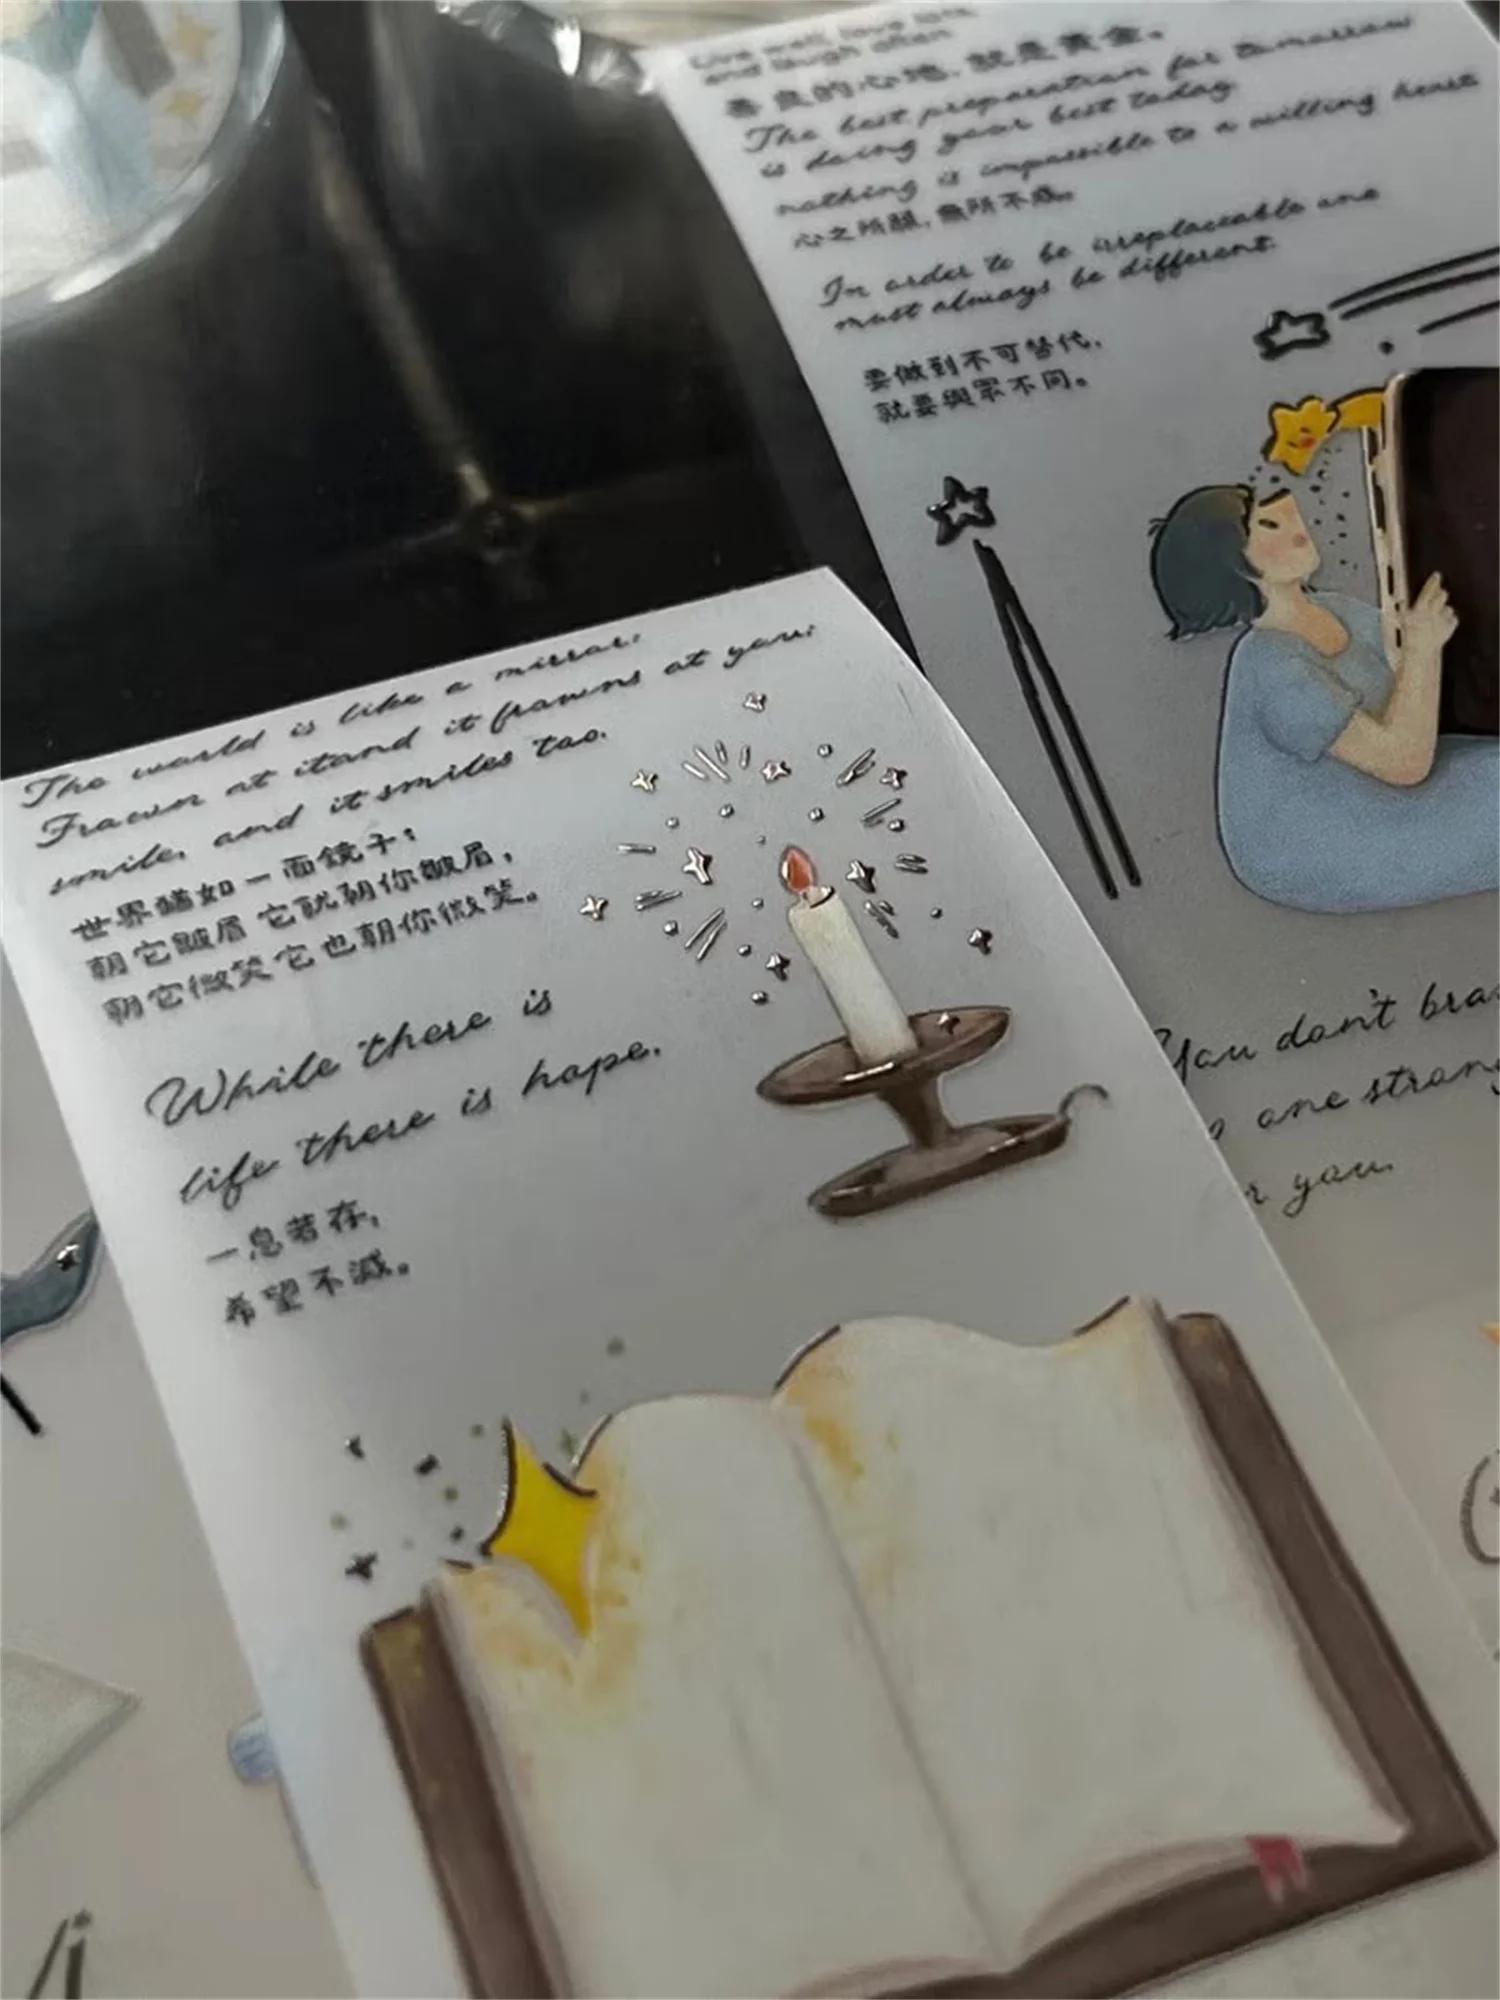 Live well, love lots,
and laugh often
善良的心地，就是黃金。
The best preparation for tomorrow
is doing your best today
nothing is impossible to a willing heart
心之所願，無所不成。
In order to be irreplaceable one
must always be different.
要做到不可替代，
就要與眾不同。
The world is like a mirror:
Frown at itand it frowns at you;
smile, and it smiles too.
世界猶如一面鏡子：
朝它皺眉 它就朝你皺眉，
朝它微笑它也朝你微笑。
While there is
life there is hope.
一息若存，
希望不滅。
You don't
one
you.